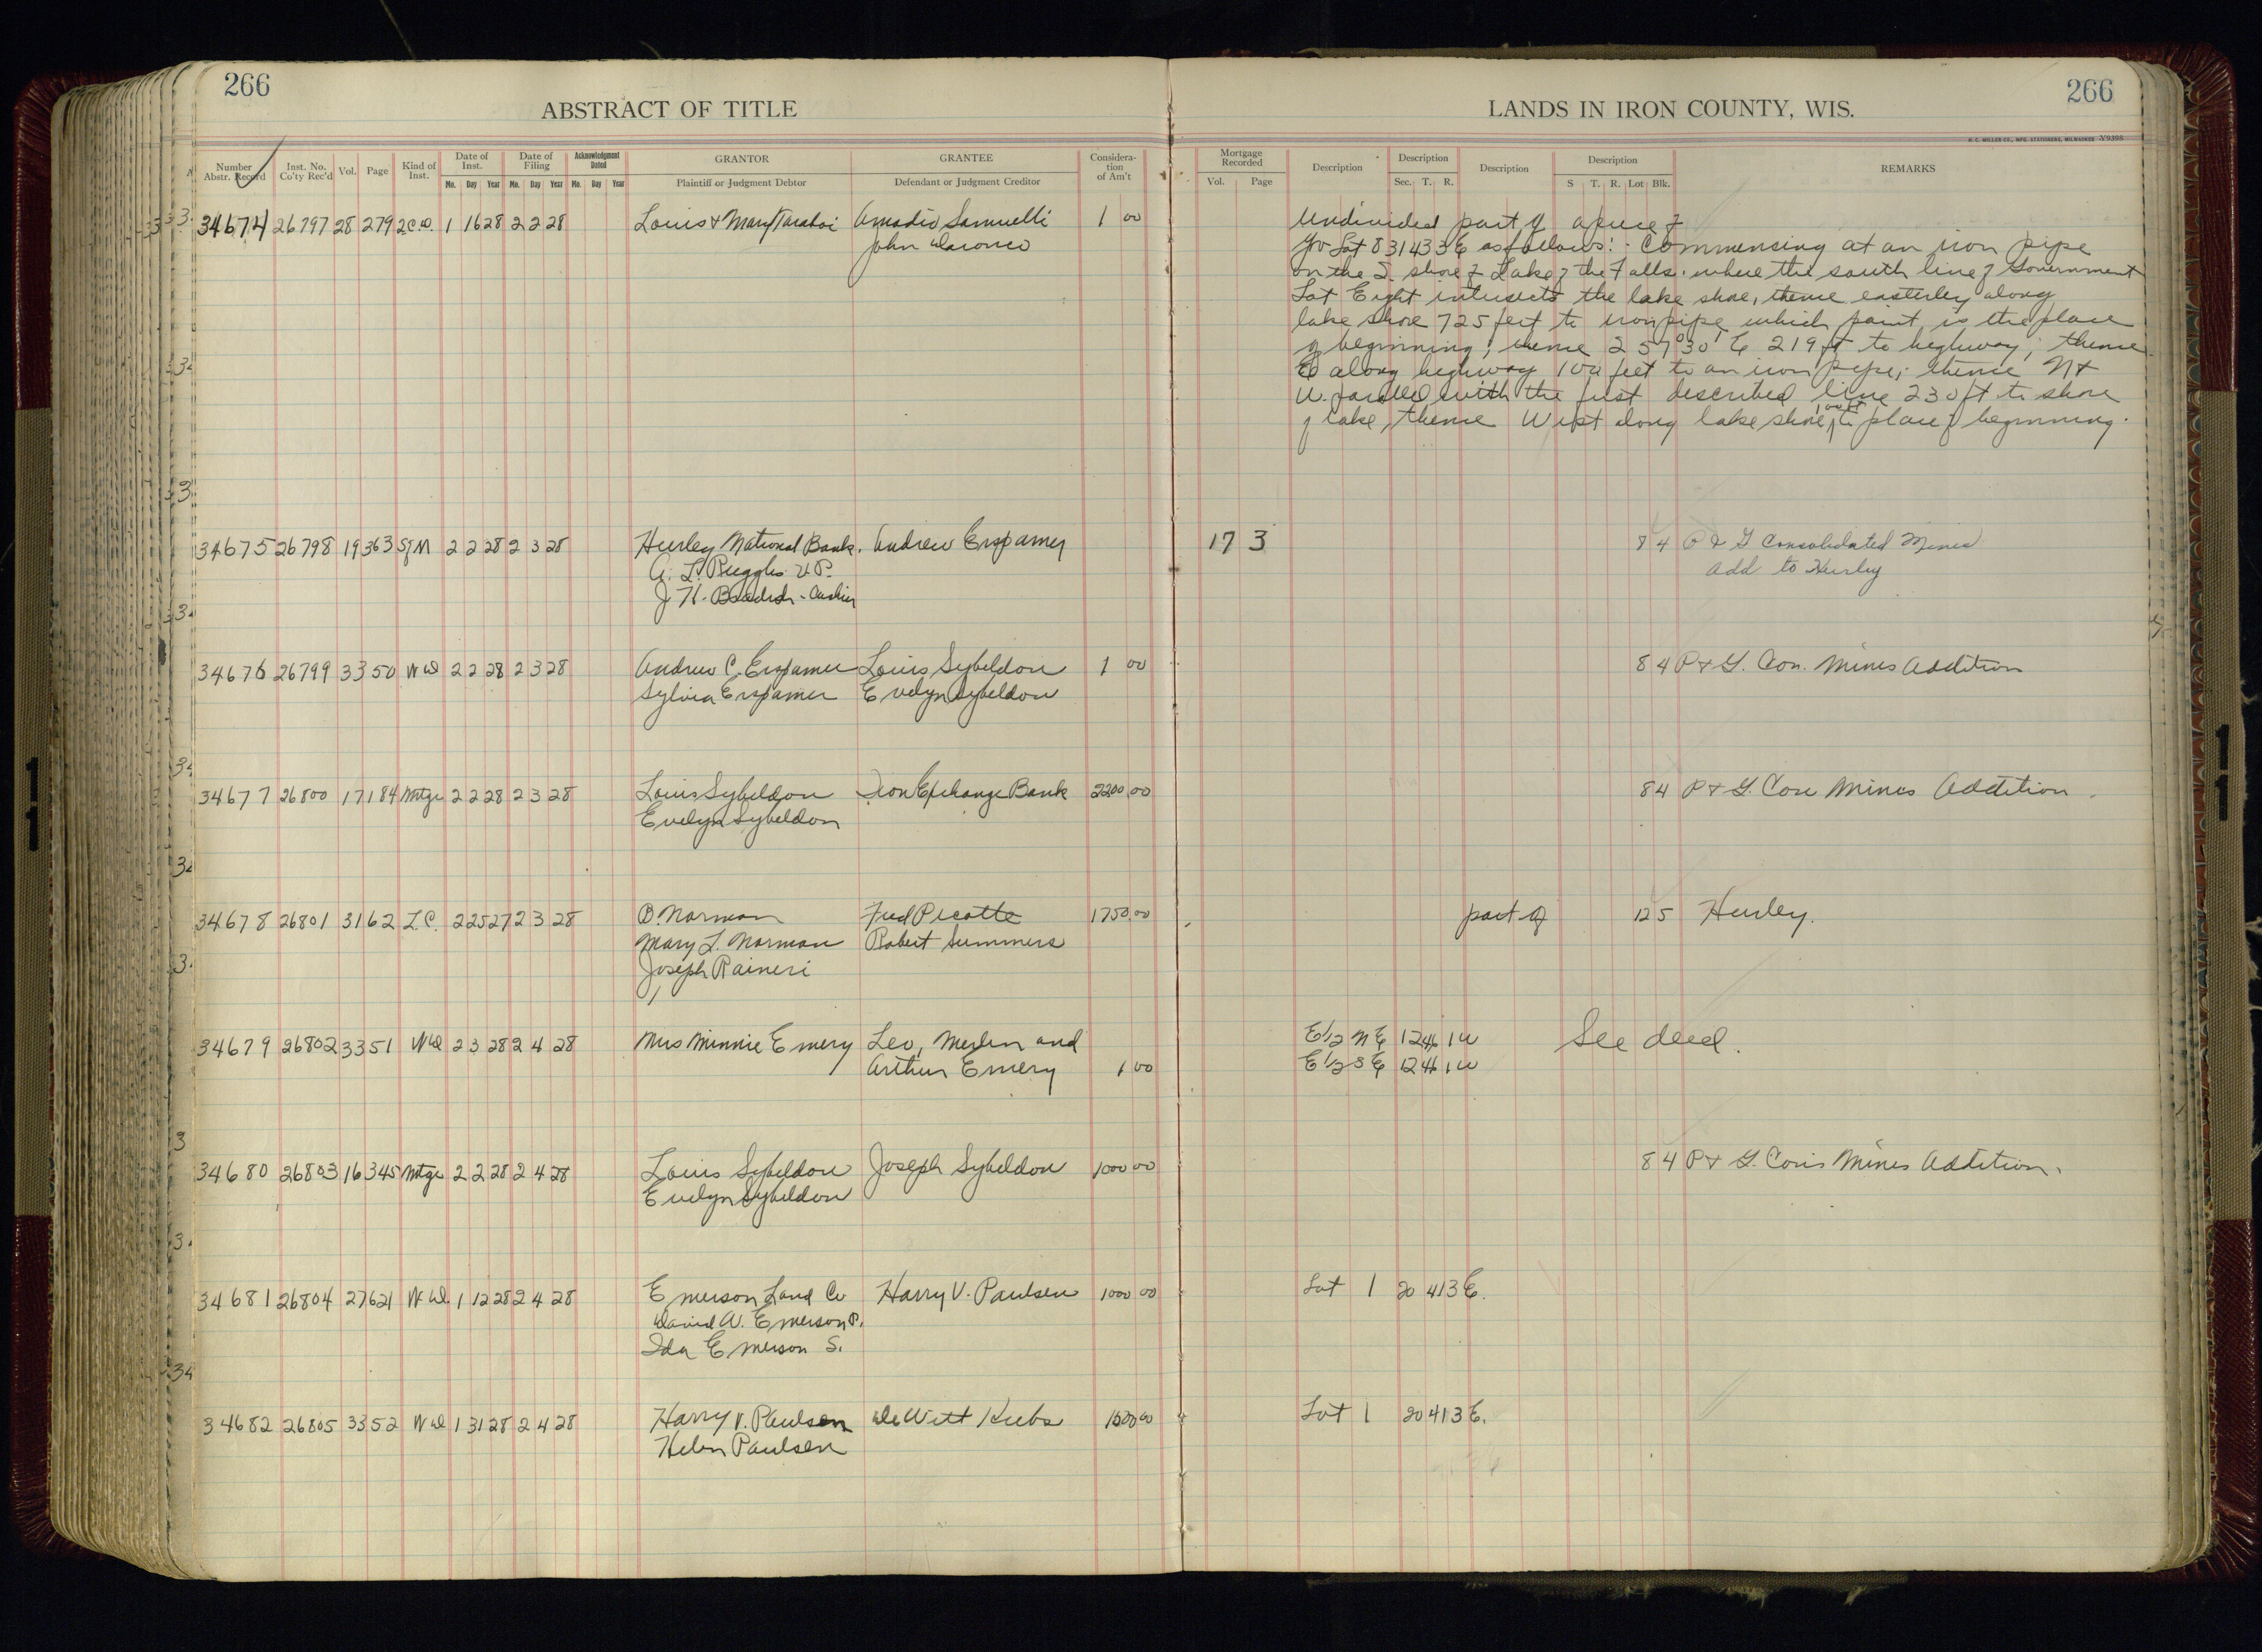 266
ABSTRACT OF TITLE
LANDS IN IRON COUNTY, WIS.
266
H. C. MILLER CO., MFG. STATIONERS, MILWAUKEE
Number Abstr. Record Inst. No. Co'ty Rec'd Vol. Page Kind of Inst. Date of Inst. Mo. Day Year Date of Filing Mo. Day Year Acknowledgment Dated Mo. Day Year GRANTOR Plaintiff or Judgment Debtor GRANTEE Defendant or Judgment Creditor Considera-tion of Am't Mortgage Recorded Vol. Page Description Description Sec. T. R. Description Description S T. R. Lot Blk. REMARKS
34674 26797 28 279 2C.D. 1 16 28 2 2 28 Louis & Mary Amadio Samuelli 1 00 Undivided part of a piece of
John Gov Lot 8 31 43 3E as follows: - Commensing at an iron pipe
on the S. shore of Lake of the Falls. where the south line of Government
Lot Eight intersects the lake shore, thence easterley along
lake shore 725 feet to iron pipe which point is the place
of beginning; thence 2 57°30' E 219 ft to highway; thence
E along highway 100 feet to an iron pipe; thence N &
W. parallel with the first described line 230 ft to shore
of lake, thence West along lake shore, 100 ft to place of beginning.
34675 26798 19 363 Sf M 2 2 28 2 3 28 Hurley National Bank. Andrew Erspamer 17 3 8 4 P & G Consolidated Mines
A. L. Ruggles V.P. Add to Hurley
J. H. - Cashier
34676 26799 33 50 W D 2 2 28 2 3 28 Andrew C. Erspamer Louis Sybeldon 1 00 8 4 P & G. Con. Mines Addition
Sylvia Erspamer Evelyn Sybeldon
34677 26800 17 184 Mtge 2 2 28 2 3 28 Louis Sybeldon Iron Exchange Bank 2200 00 8 4 P & G. Con Mines Addition.
Evelyn Sybeldon
34678 26801 31 62 L.C. 2 25 27 2 3 28 B. Norman Fred Picotte 1750 00 part of 12 5 Hurley.
Mary L. Norman Robert Summers
Joseph Raineri
34679 26802 33 51 W D 2 3 28 2 4 28 Mrs Minnie Emery Leo, Merlin and E 1/2 N E 12 46 1 W See deed.
Arthur Emery 1 00 E 1/2 S E 12 46 1 W
34680 26803 16 345 Mtge 2 2 28 2 4 28 Louis Sybeldon Joseph Sybeldon 1000 00 8 4 P & G. Cons Mines Addition.
Evelyn Sybeldon
34681 26804 27 621 W D. 1 12 28 2 4 28 Emerson Land Co Harry V. Paulsen 1000 00 Lot 1 20 41 3 E.
David W. Emerson P.
Ida Emerson S.
34682 26805 33 52 W D 1 31 28 2 4 28 Harry V. Paulsen DeWitt Kubs 1500 00 Lot 1 20 41 3 E.
Helen Paulsen